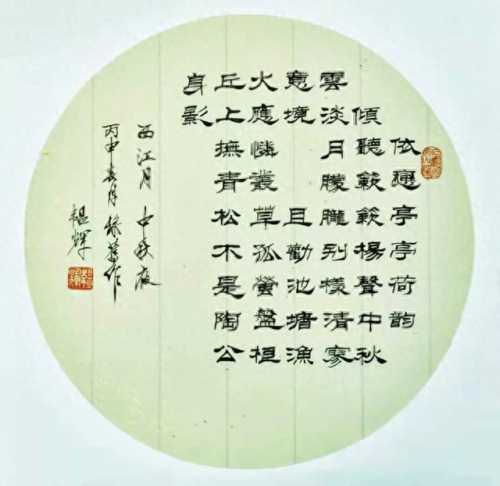 依戀亭亭荷韵
傾聽簌簌楊聲中秋
雲淡月朦朧別樣清寥
意境 且勸池塘漁
火應憐叢草孤螢盤桓
丘上撫青松不是陶公
身影
西江月 中秋夜
丙申春月錄舊作
輝